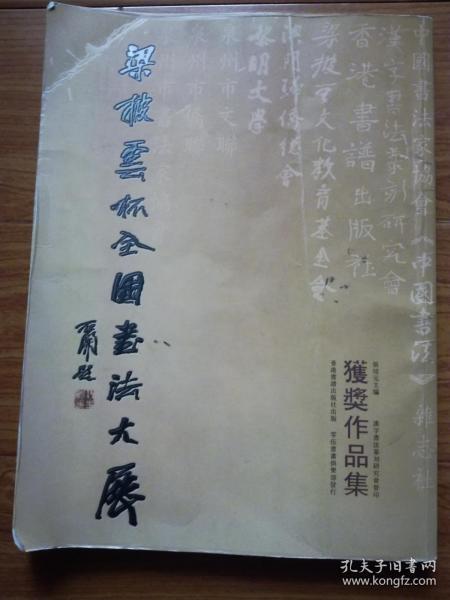 中國書法家協會《中國書法》雜志社
漢字書法篆刻研究會
香港書譜出版社
梁披雲文化教育基金會
澳門歸僑總會
黎明大學
泉州市文聯
泉州市僑聯
主編 漢字書法篆刻研究會督印
獲獎作品集
香港書譜出版社出版 零伍書畫俱樂部發行
梁披雲杯全國書法大展
題
孔夫子旧书网
www.kongfz.com